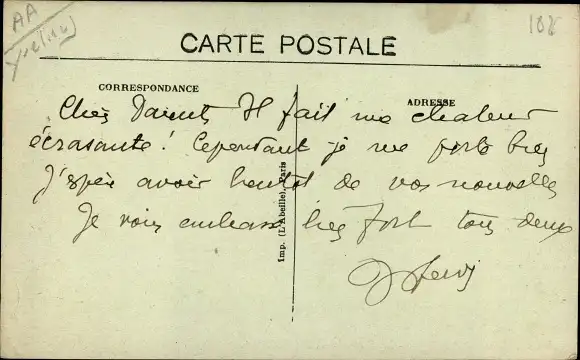 AA
Yvelines
188
CARTE POSTALE
CORRESPONDANCE
ADRESSE
Chers Parents Il fait une chaleur
écrasante! Cependant je me porte bien
J'espère avoir bientot de vos nouvelles
Je vous embrasse bien fort tous deux
Imp. (L'Abeille), Paris